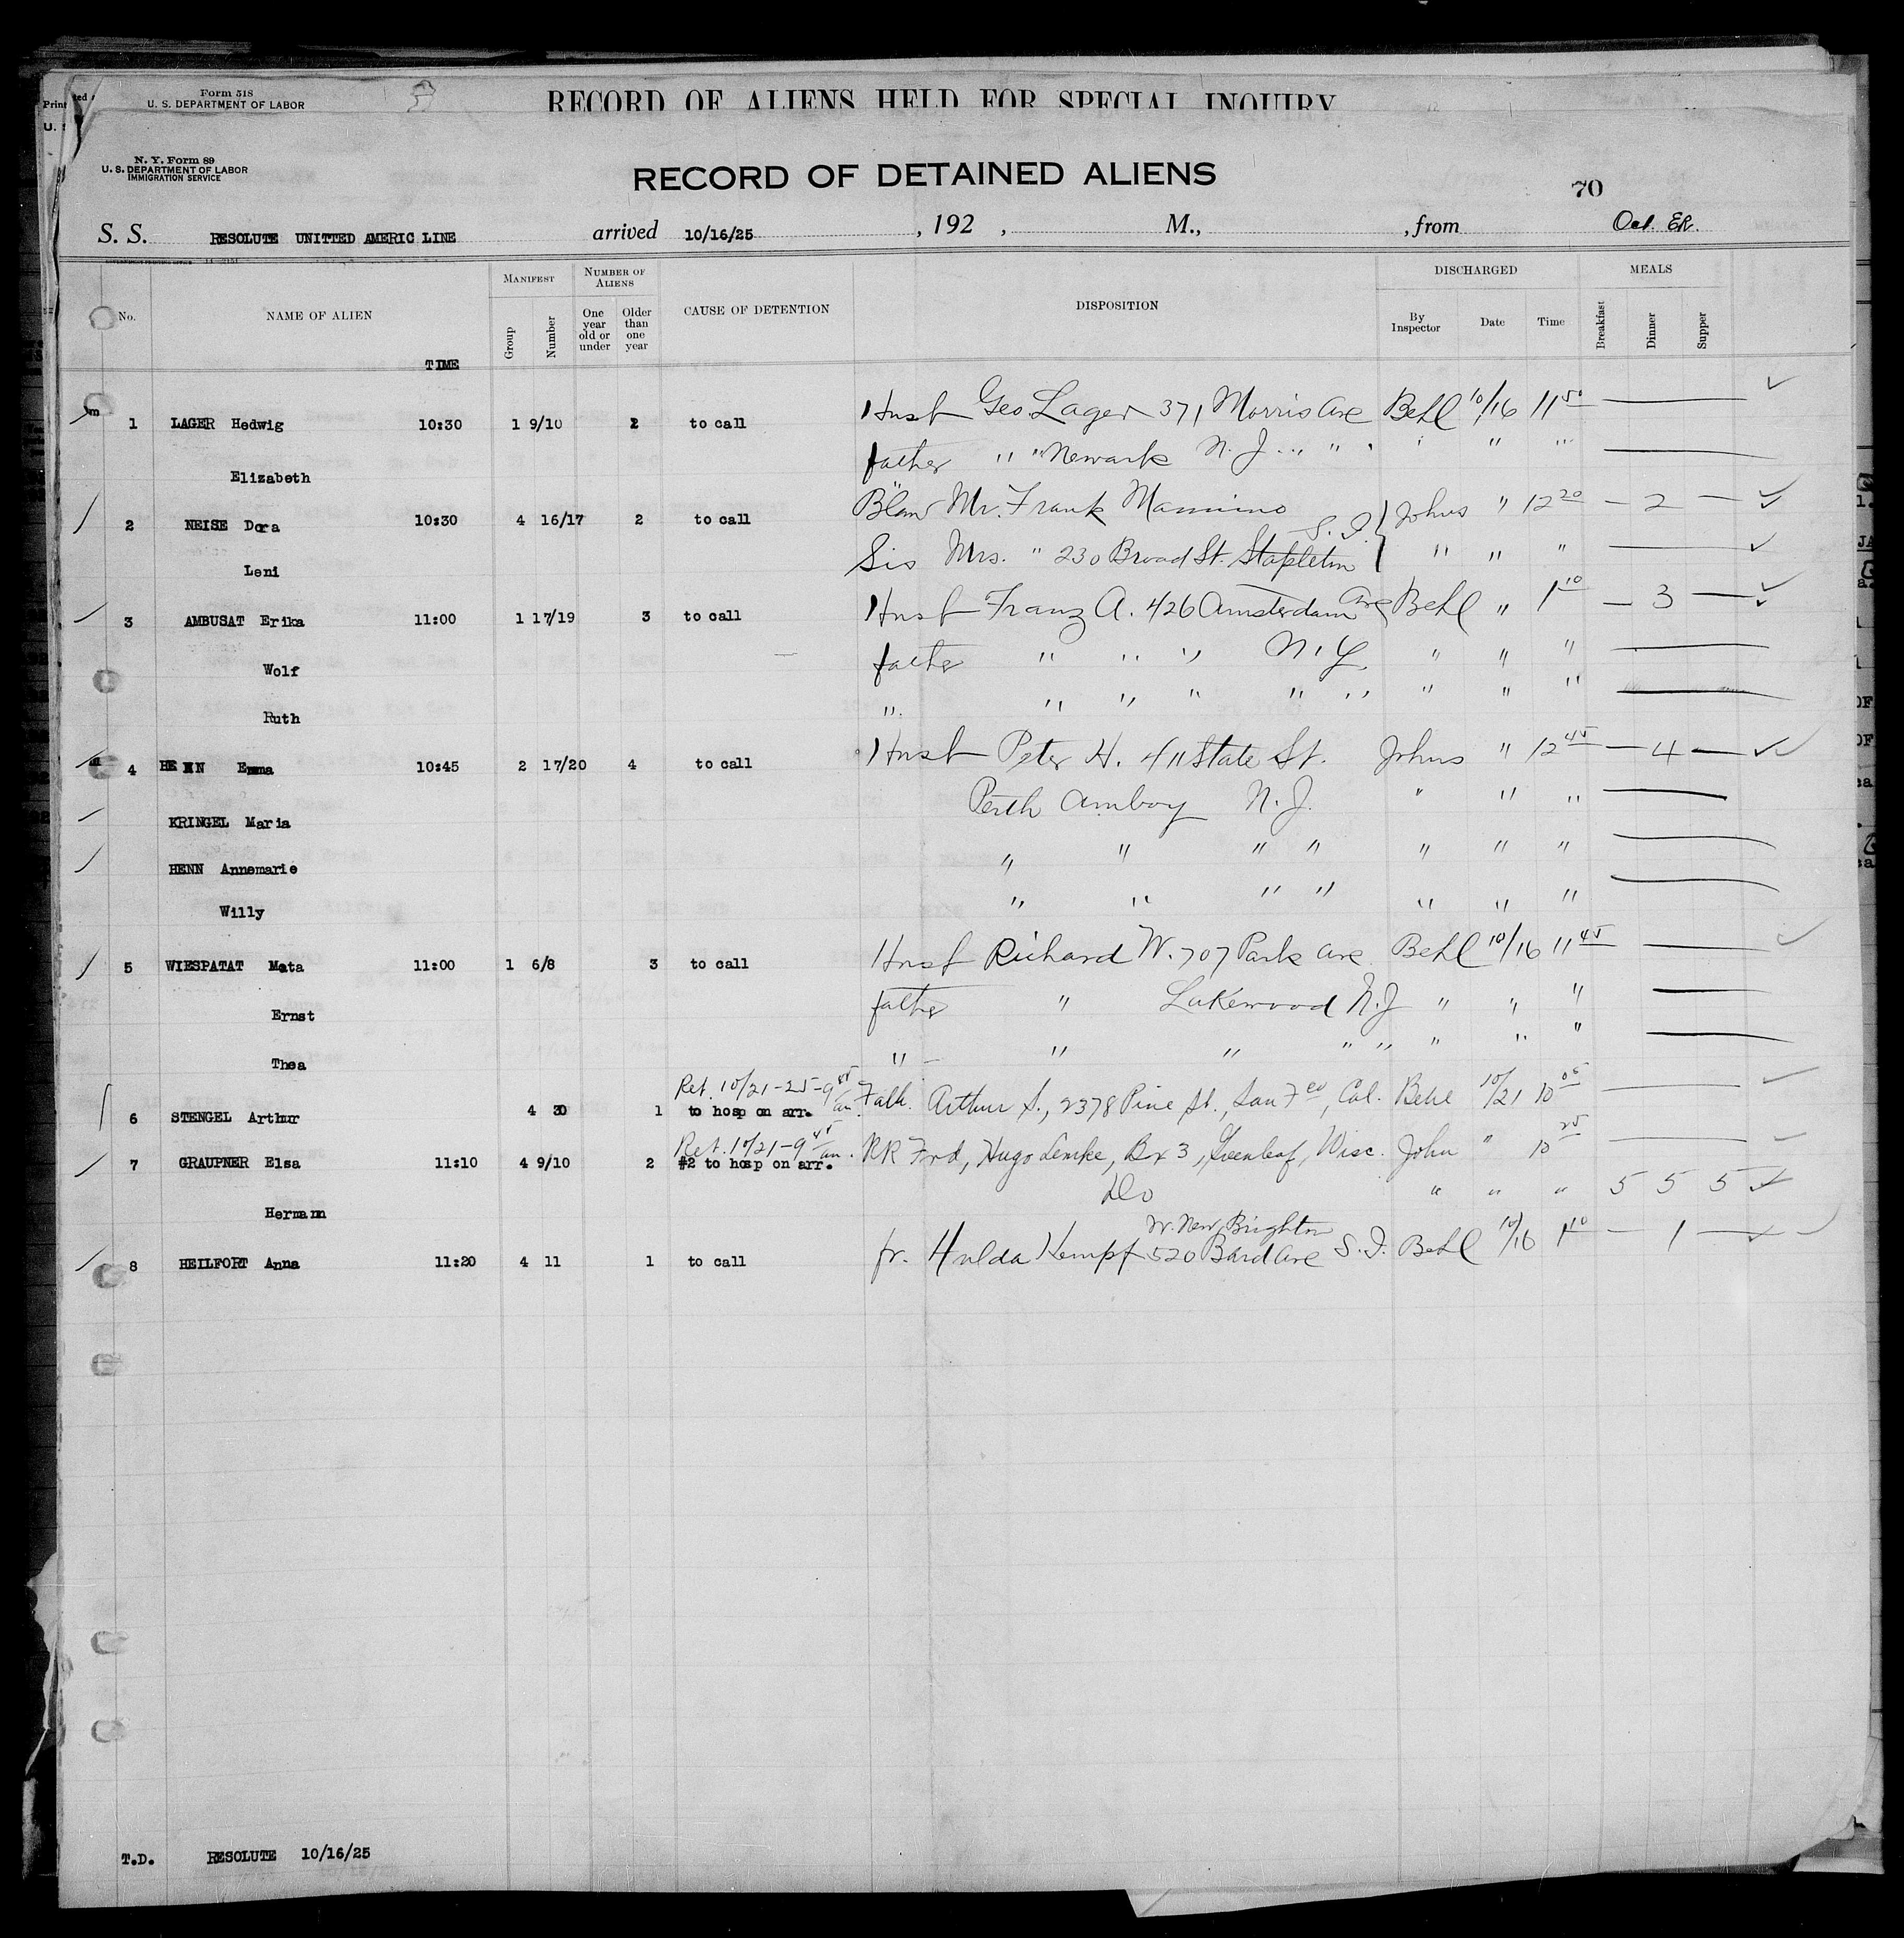 Form 518
U. S. DEPARTMENT OF LABOR
RECORD OF ALIENS HELD FOR SPECIAL INQUIRY
N. Y. Form 89
U. S. DEPARTMENT OF LABOR
IMMIGRATION SERVICE
RECORD OF DETAINED ALIENS
70
S. S. RESOLUTE UNITTED AMERIC LINE arrived 10/16/25, 192 , M., , from Oct. ER.
No. NAME OF ALIEN TIME MANIFEST Group Number NUMBER OF ALIENS One year old or under Older than one year CAUSE OF DETENTION DISPOSITION DISCHARGED By Inspector Date Time MEALS Breakfast Dinner Supper
1 LAGER Hedwig 10:30 1 9/10 2 to call Husb Geo. Lager 371 Morris Ave Behl 10/16 11 50
Elizabeth father " " Newark N. J. " " " " "
2 NEISE Dora 10:30 4 16/17 2 to call Blaw Mr. Frank Mannino Johns " 12 20 — 2 — ✓
Leni Sis Mrs. " 230 Broad St. Stapleton S. I. " " " ✓
3 AMBUSAT Erika 11:00 1 17/19 3 to call Husb Franz A. 426 Amsterdam Ave Behl " 1 10 — 3 — ✓
Wolf father " " " N. Y. " " "
Ruth " " " " " " " " "
4 HENN Emma 10:45 2 17/20 4 to call Husb Peter H. 411 State St. Johns " 12 45 — 4 — ✓✓
KRINGEL Maria Perth Amboy N. J. " " "
HENN Annemarie " " " " " " "
Willy " " " " " " "
5 WIESPATAT Meta 11:00 1 6/8 3 to call Husb Richard W. 707 Park Ave Behl 10/16 11 45 ✓
Ernst father " Lakewood N. J " " "
Thea " " " " " " " "
Ret. 10/21-25-9 45 am.
6 STENGEL Arthur 4 30 1 to hosp on arr. Fath. Arthur S., 2378 Pine St., San Fco, Cal. Behl 10/21 10 05 ✓
Ret. 10/21-9 45 am.
7 GRAUPNER Elsa 11:10 4 9/10 2 #2 to hosp on arr. RR Frd, Hugo Lemke, Bx 3, Greenleaf, Wisc. John " 10 25 ✓
Hermann Do " " " 5 5 5 ✓
W. New Brighton
8 HEILFORT Anna 11:20 4 11 1 to call fr. Hulda Kempf 520 Bard Ave S. I. Behl 10/16 1 10 — 1 — ✓
T.D. RESOLUTE 10/16/25